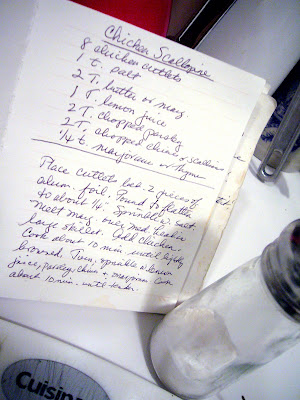 Chicken Scallopine
8 chicken cutlets
1 t. salt
2 T. butter or marg.
1 T lemon juice
2 T. chopped parsley
2 T. chopped chives or scallions
1/4 t. marjoram or thyme
Place cutlets bet. 2 pieces of
alum. foil. Pound to flatten
to about 1/4". Sprinkle salt.
Melt marg. over med heat in
large skillet. Add chicken.
Cook about 10 min until lightly
browned. Turn, sprinkle lemon
juice, parsley, chives + marjoram. Cook
about 10 min - until tender.
Cuisina